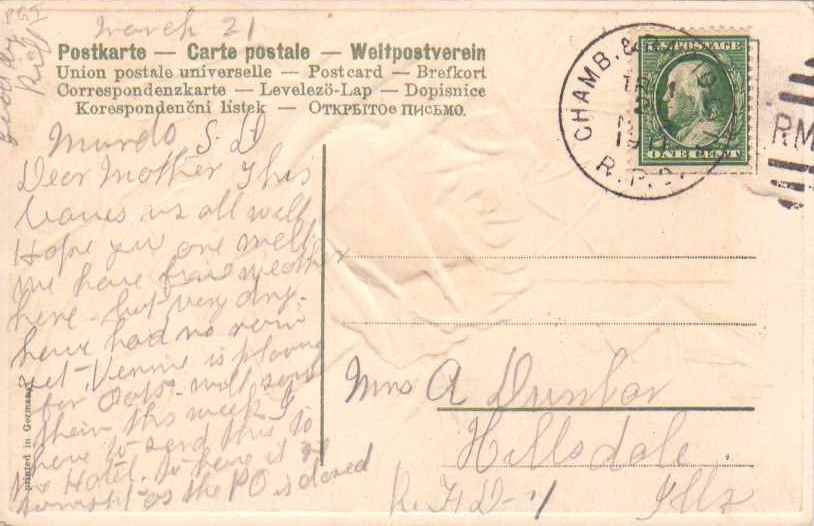 March 21
Postkarte — Carte postale — Weltpostverein
Union postale universelle — Postcard — Brefkort
Correspondenzkarte — Levelező-Lap — Dopisnice
Korespondenčni listek — ОТКРЫТОЕ ПИСЬМО.
U.S. POSTAGE
ONE CENT
CHAMB. &
R.P.O.
RM
Murdo S. D
Dear Mother This
leaves us all well
Hope you are well
we have fine weather
here - but very dry.
have had no rain
yet - is plowing
for Oats - will send
their this week I
have to send this to
Hotel. to have it
as the PO is closed
Mrs A Dunbar
Hillsdale
R. F. D - 1
Ills
printed in Germany